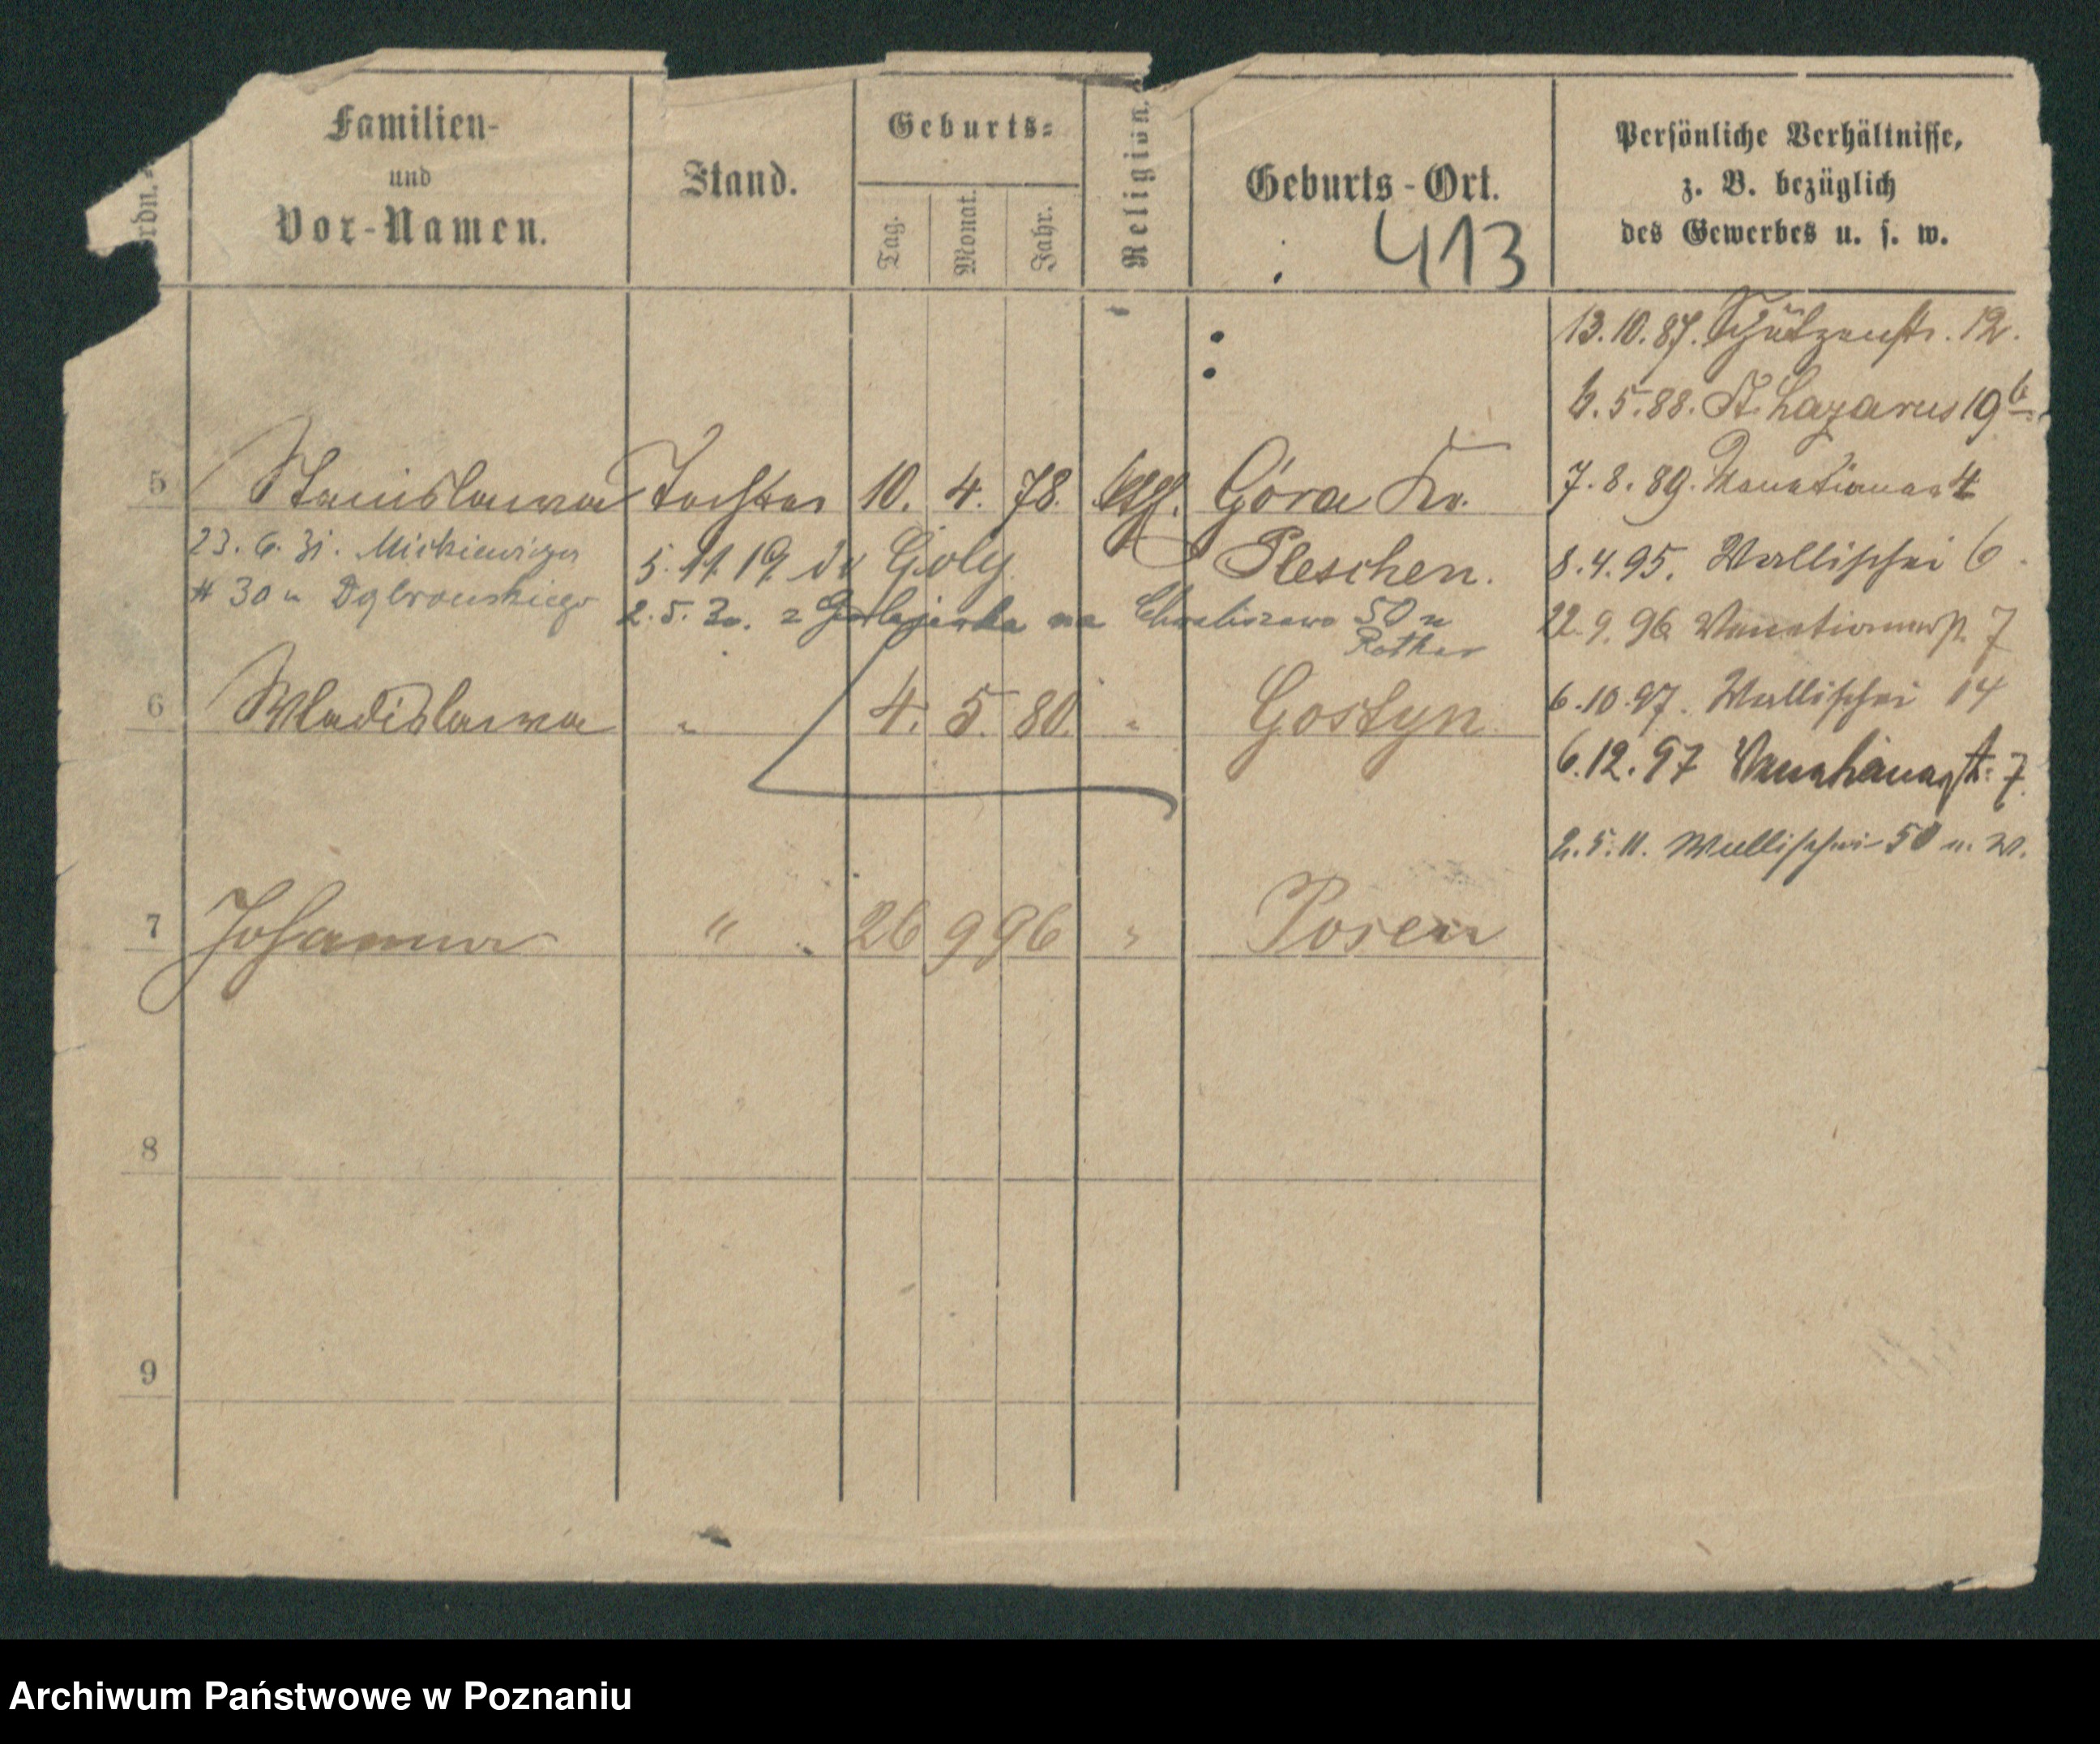 Familien-
und
Vor-Namen.
Stand.
Geburts-
Tag.
Monat.
Jahr.
Religion.
Geburts-Ort.
413
Persönliche Verhältnisse,
z. B. bezüglich
des Gewerbes u. s. w.
13.10.87. Schützenstr. 12.
6.5.88. St. Lazarus 19b
5 Stanislawa Tochter 10. 4. 78. Góra Kr.
Pleschen.
7.8.89. 4
23.6.31. Mickiewicza
# 30 u Dąbrowskiego
5.11.19.
2.5.30. z na Chwaliszewo 50 u
Rother
8.4.95. Wallischei 6
22.9.96 Venetianerstr. 7
6 Wladislawa " 4. 5. 80. " Gostyn
6.10.97. Wallischei 14
6.12.97 7
2.5.11. Wallischei 50 u. W.
7 Johanna " 26 9 96 " Posen
8
9
Archiwum Państwowe w Poznaniu